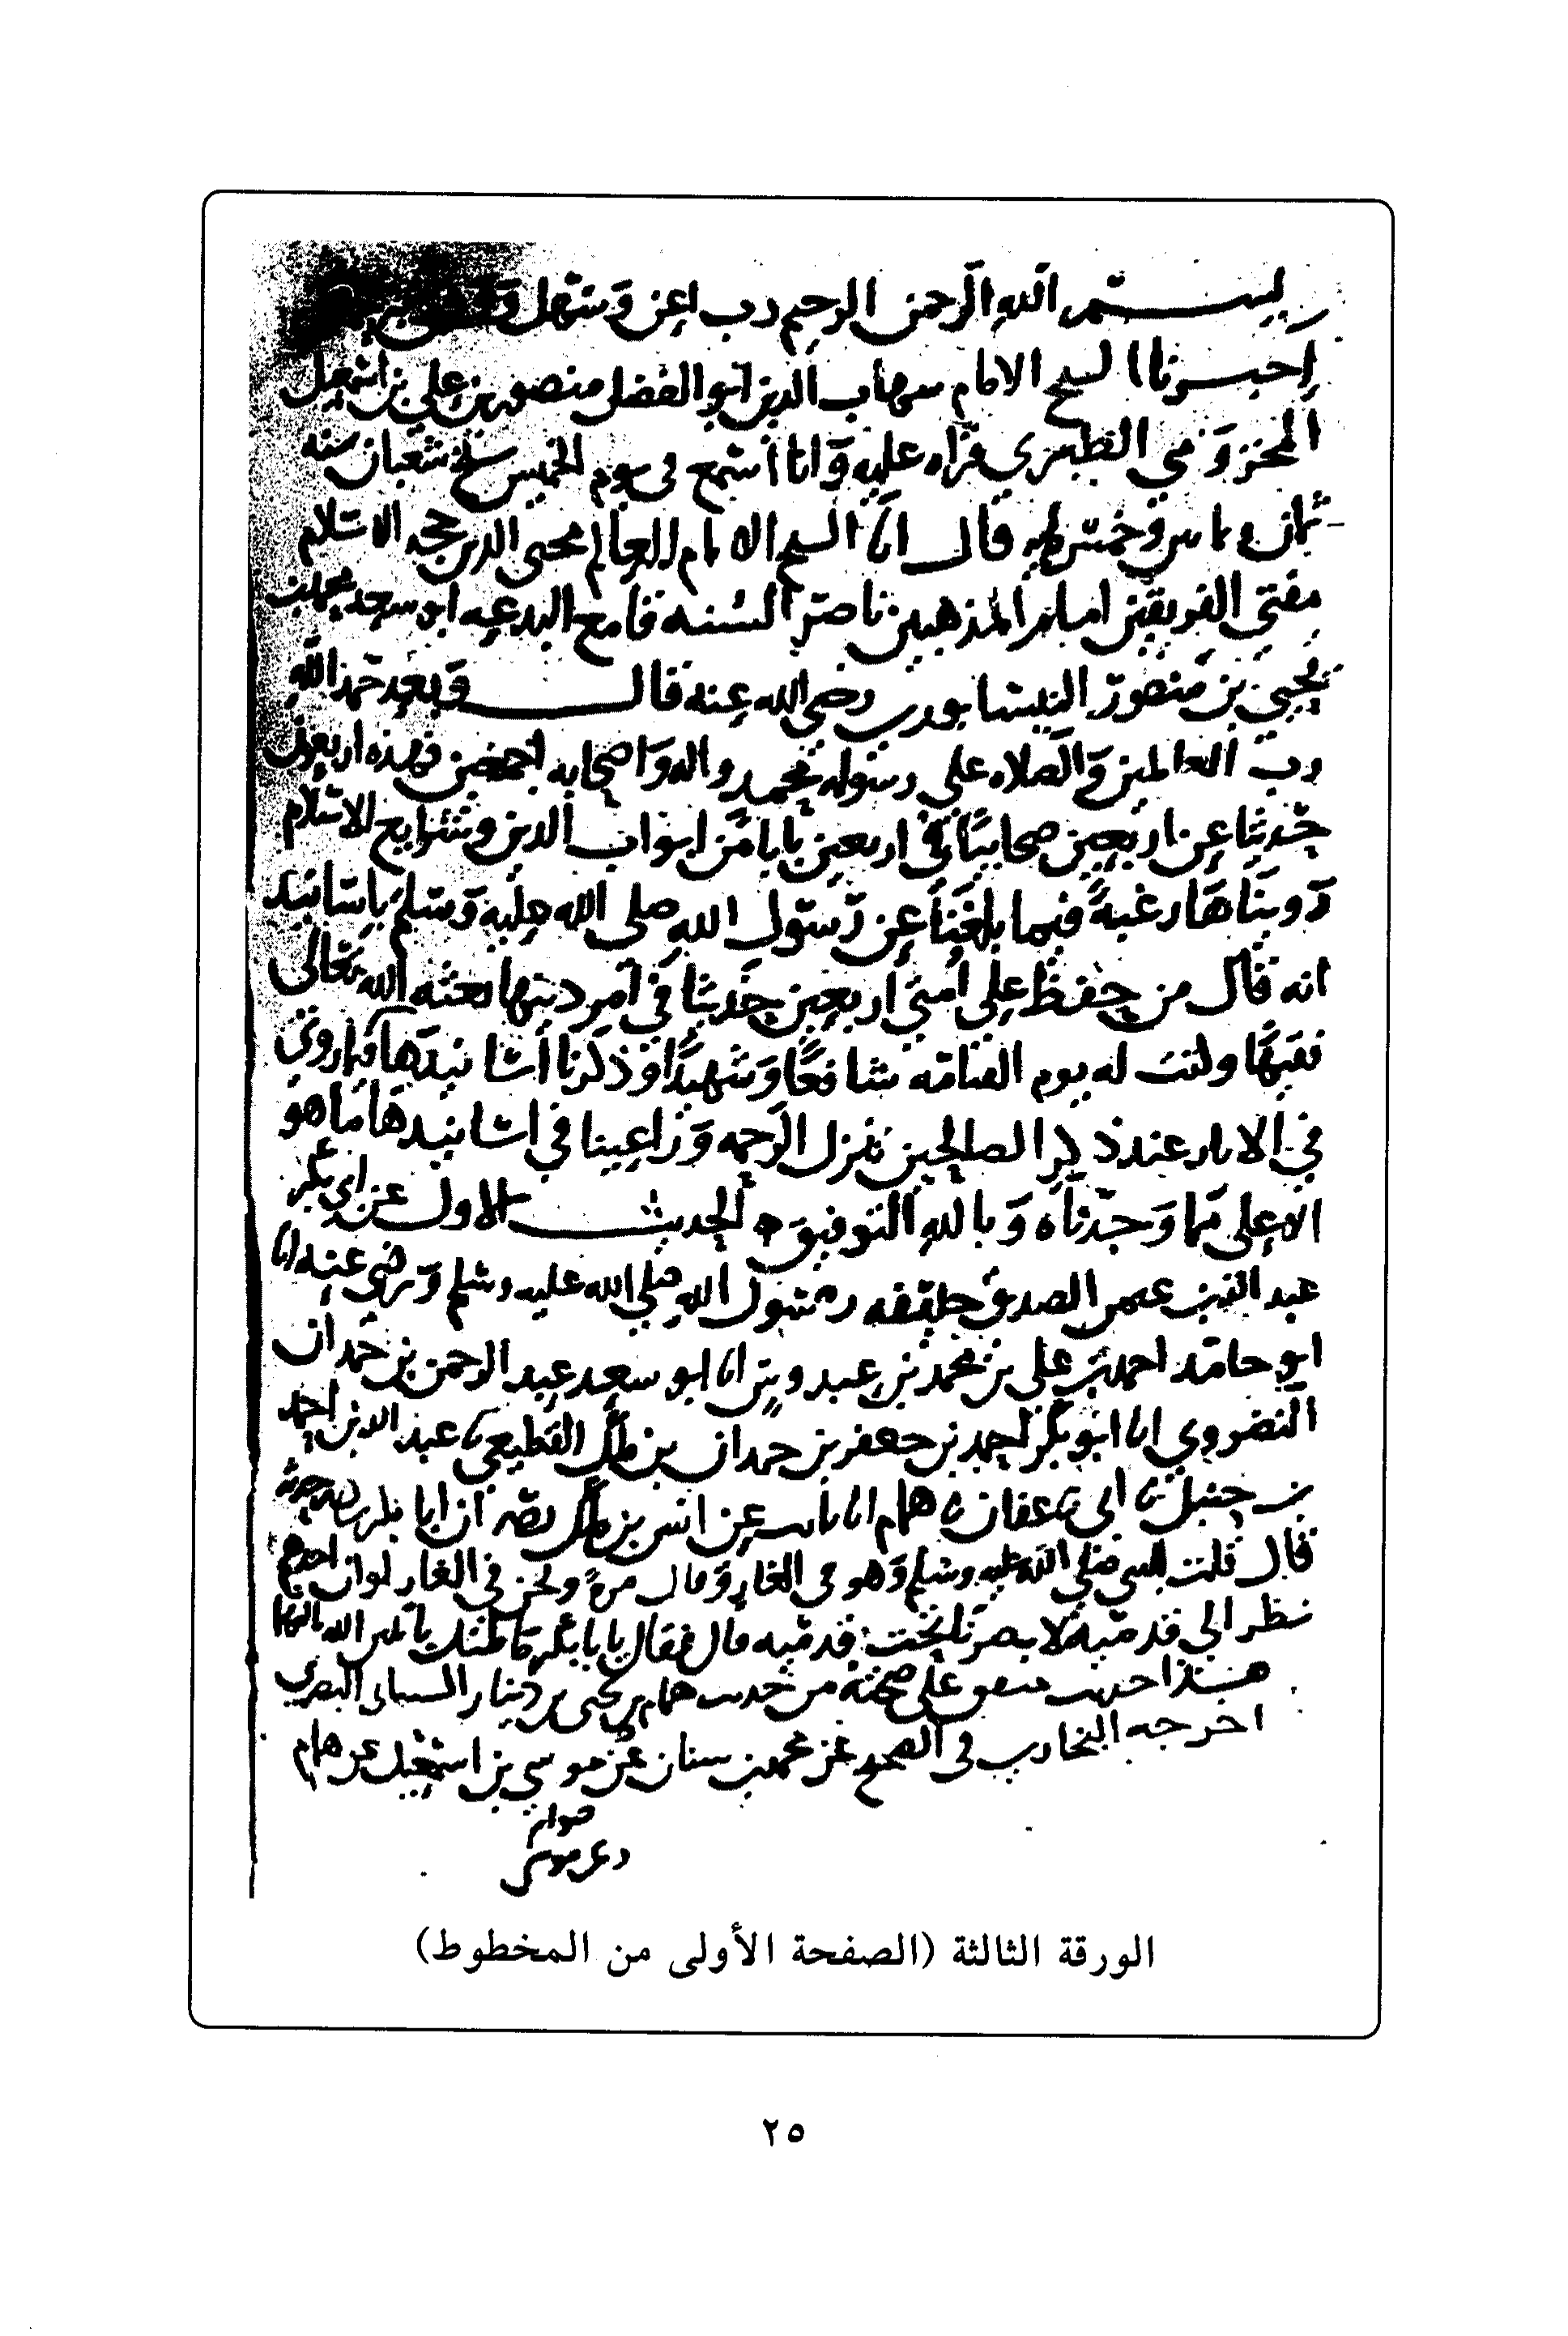 بسم الله الرحمن الرحيم رب اعن وسهل
اخبرنا الشيخ الامام شهاب الدين ابو الفضل منصور بن علي بن اسمعيل
المخزومي الطبري قراه عليه وانا اسمع في يوم الخميس سلخ شعبان سنه
ثمان وثمانين وخمس مايه قال انا الشيخ الامام العالم محيي الدين حجه الاسلام
مفتي الفريقين امام المذهبين ناصر السنه قامع البدعه ابو سعد محمد بن
يحيى بن منصور النيسابوري رضي الله عنه قال وبعد حمد الله
رب العالمين والصلاه على رسوله محمد واله واصحابه اجمعين فهذه اربعون
حديثا عن اربعين صحابيا في اربعين بابا من ابواب الدين وشرايع الاسلام
رويناها رغبة فيما بلغنا عن رسول الله صلى الله عليه وسلم باسانيد
انه قال من حفظ على امتي اربعين حديثا في امر دينها بعثه الله تعالى
فقيها وكنت له يوم القيامه شافعا وشهيدا وذكرنا اسانيدها فما روي
في الاثار عند ذكر الصالحين تنزل الرحمه وراعينا في اسانيدها ما هو
الاعلى مما وجدناه وبالله التوفيق الحديث الاول عن ابي بكر
عبد الله بن عثمن الصديق خليفه رسول الله صلى الله عليه وسلم ورضي عنه انا
ابو حامد احمد بن علي بن محمد بن عبدوس انا ابو سعيد عبد الرحمن بن حمدان
النضروي انا ابو بكر احمد بن جعفر بن حمدان بن ملك القطيعي ثنا عبد الله بن احمد
بن حنبل ثنا ابي ثنا عفان ثنا همام انا ثابت عن انس بن ملك ان ابا بكر حدثه
قال قلت للنبي صلى الله عليه وسلم وهو في الغار وقال مرة ونحن في الغار لو ان احدهم
نظر الى قدميه لابصرنا تحت قدميه قال فقال يا با بكر ما ظنك باثنين الله ثالثهما
هذا حديث متفق على صحته من حديث همام بن يحيى بن دينار الشيباني البصري
اخرجه البخاري في الصحيح عن محمد بن سنان عن موسى بن اسمعيل عن همام
صوابه
وعن موسى
الورقة الثالثة (الصفحة الأولى من المخطوط)
٢٥